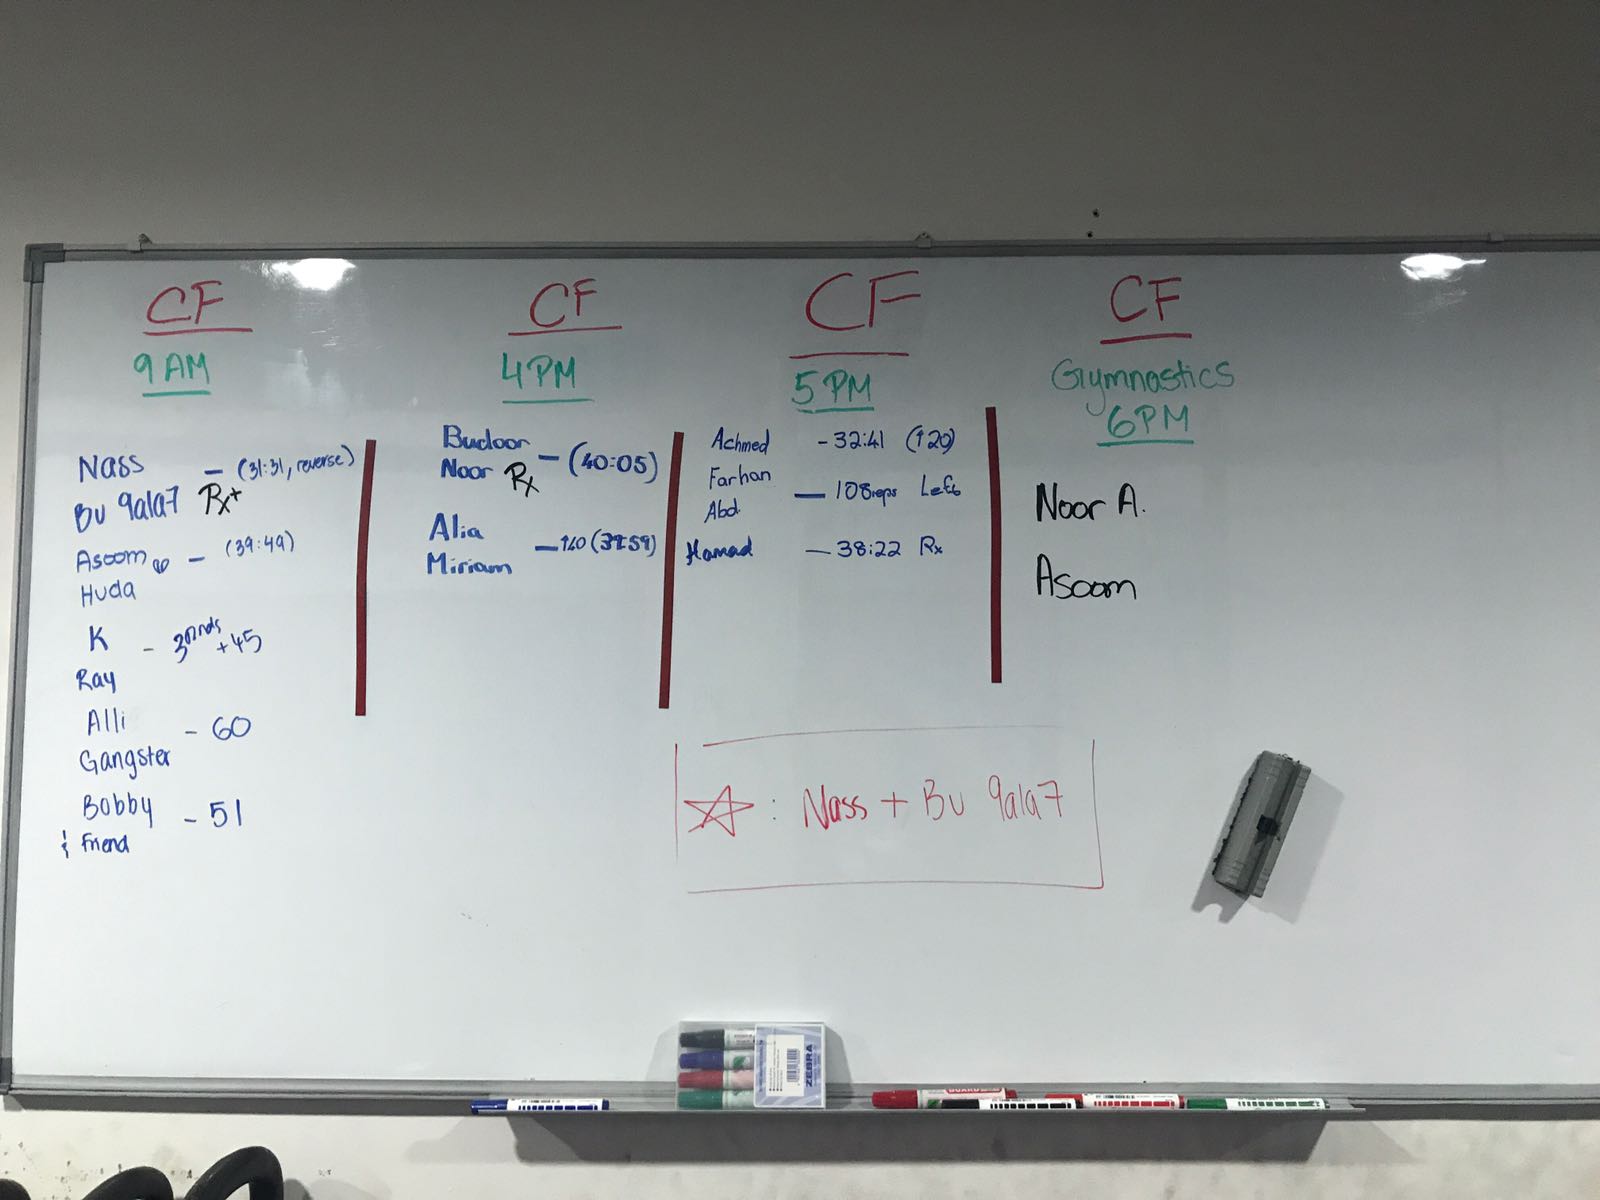 CF
9 AM
Nass - (31:31, reverse)
Bu 9ala7 Rx+
Asoom - (39:49)
Huda
K - 3rnds +45
Ray
Alli - 60
Gangster
Bobby - 51
& Friend
CF
4 PM
Budoor - (40:05)
Noor Rx
Alia
Miriam
CF
5 PM
Achmed - 32:41 (120)
Farhan - 108reps Left
Abd.
Hamad - 38:22 Rx
CF
Gymnastics
6PM
Noor A.
Asoom
: Nass + Bu 9ala7
ZEBRA